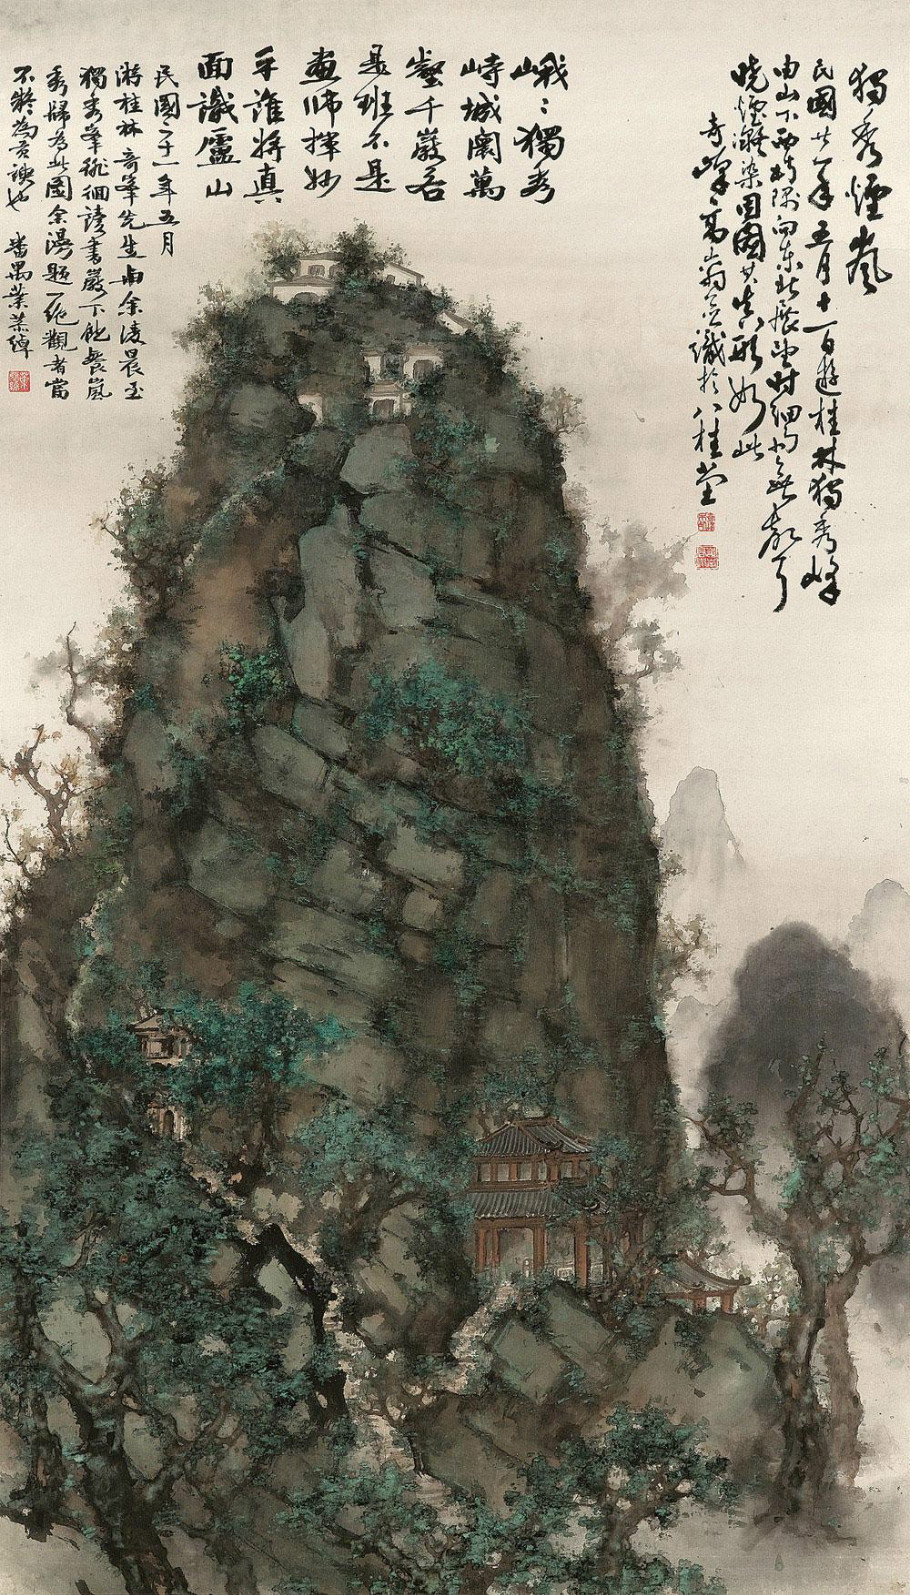 獨秀煙嵐
民國廿年五月十一日遊桂林獨秀峰
由山下西隅向東北展望時細雨無聲
曉煙染因圖其真形如此
奇峰高山翁并識於八桂堂
峨〻獨秀
峙城闉萬
壑千巖若
是班不是
畫師揮妙
手誰將真
面識廬山
民國二十一年五月
游桂林奇峯先生與余凌晨至
獨秀峯徘徊讀書巖下飽餐嵐
秀歸為此圖余漫題一絕觀者當
不為貢諛也 番禺葉恭綽